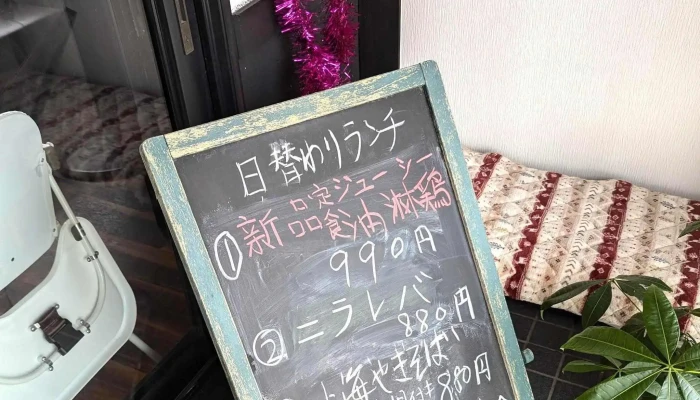 日替わりランチ
① 新品定食 ジューシー油淋鶏
990円
② ニラレバ
880円
上海やきそば
880円